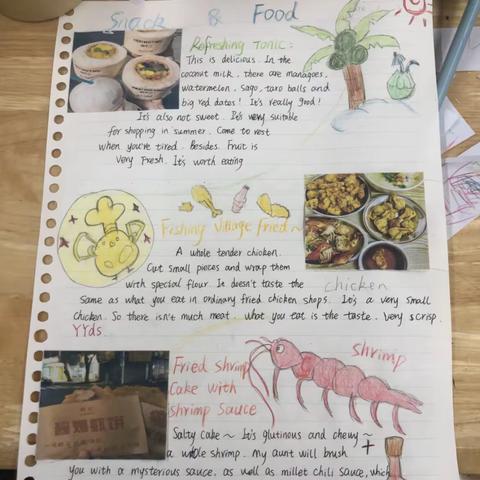 Snack & Food
Refreshing Tonic:
This is delicious. In the
coconut milk, there are managoes,
watermelon, Sago, taro balls and
big red dates! It's really good!
It's also not sweet. It's very suitable
for shopping in summer. Come to rest
when you've tired. Besides. Fruit is
Very Fresh. It's worth eating
Fishing Village Fried~
A whole tender chicken.
Cut small pieces and wrap them
with special flour. It doesn't taste the chicken
Same as what you eat in ordinary fried chicken shops. It's a very small
Chicken. So there isn't much meat. what you eat is the taste. Very scrisp.
YYds
Fried shrimp
Cake with
shrimp Sauce
shrimp
Salty Cake~ It's glutinous and chewy~
a whole shrimp. My aunt will brush
you with a mysterious sauce. as well as millet chili sauce, which